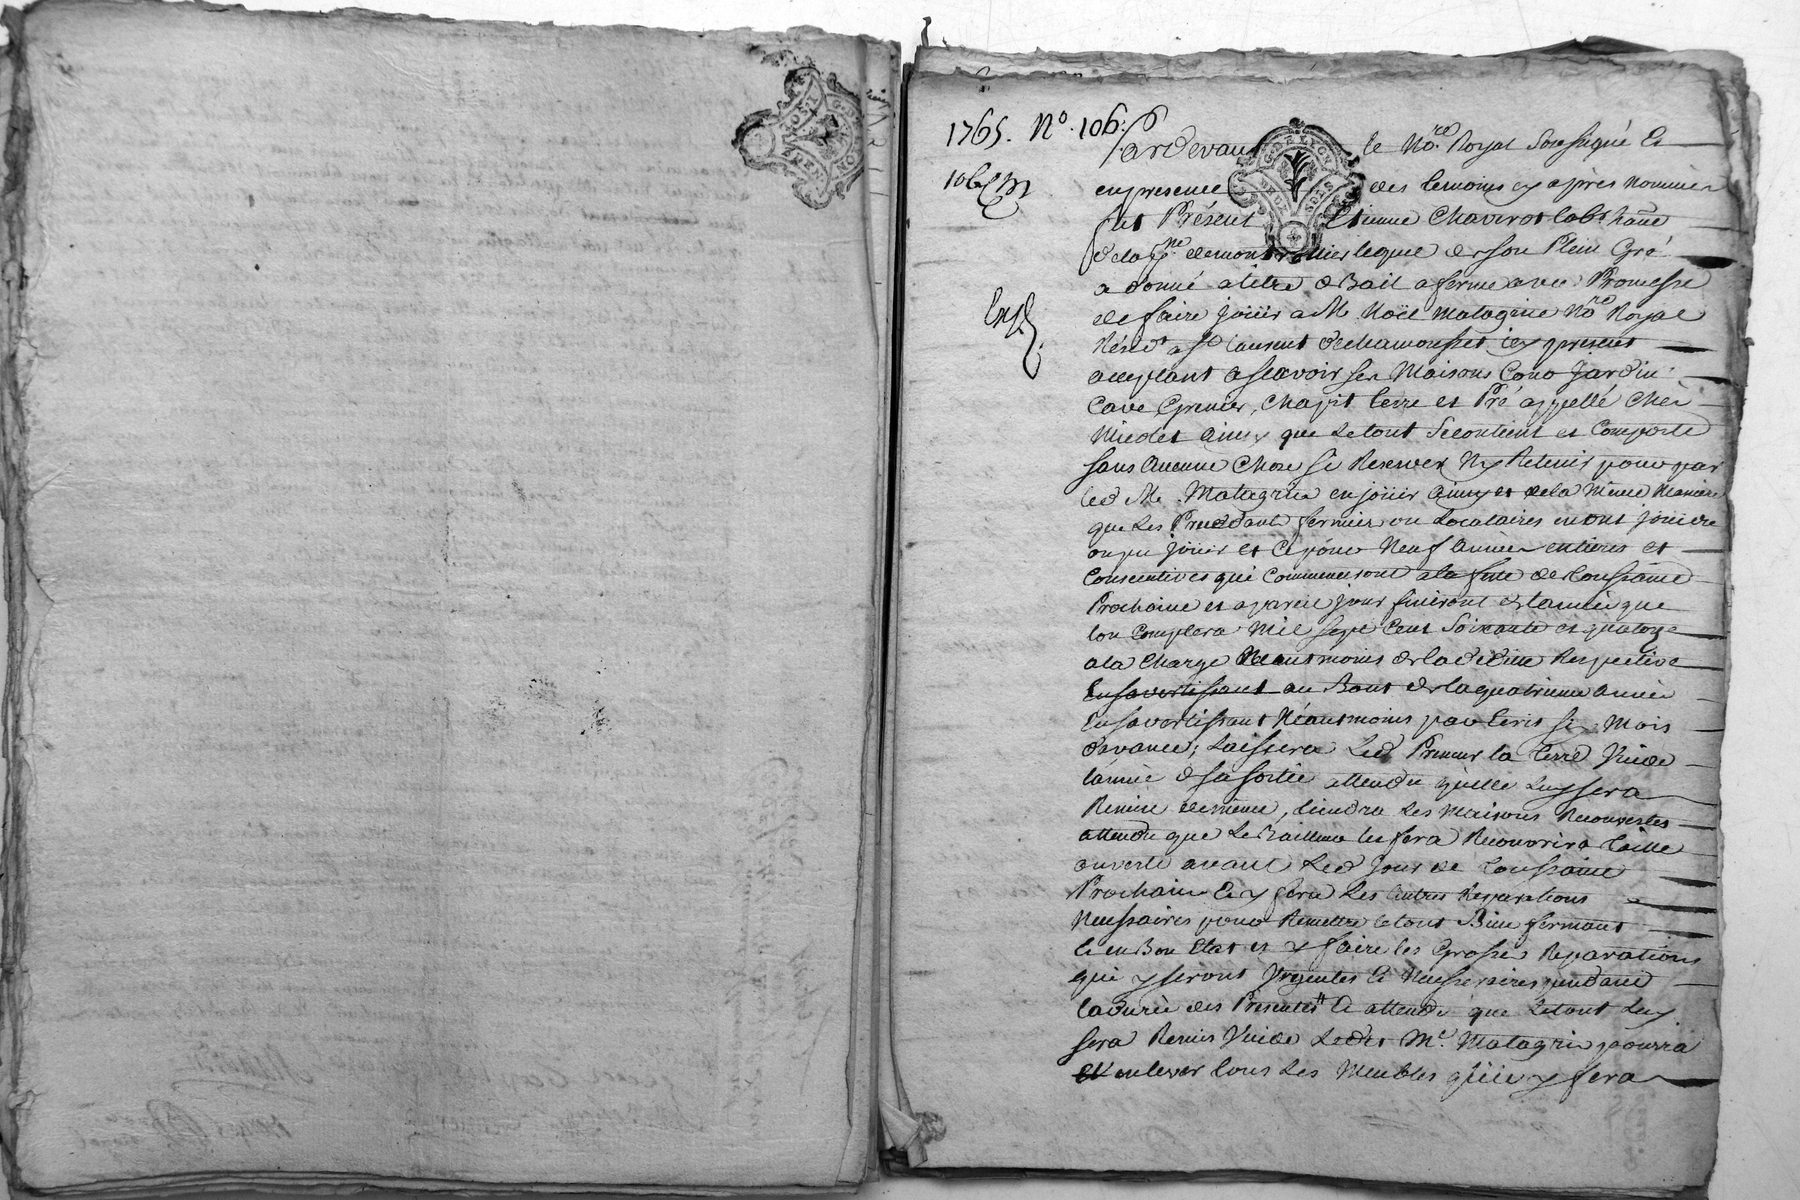 1765. No. 106.
106
Expé.
Pardevant le No.re Royal Soussigné Et
en presence des temoins cy après nommes
fut Présent Etienne Chavrot lab.r hant
de la p.sse de montrottier lequel de son Plein Gré
a donné a titre de Bail a ferme avec Promesse
de faire joüir a M.e Noël matagrin No.re Royal
Résid.t a S.t laurent de chamousset icy present
acceptant a scavoir ses Maisons Cour Jardin
Cave Grenier, Chapit terre et Pré appellé Chès
Niedet ainsy que le tout Se contient et Comporte
sans Aucune Chose Se Reserver Ny Retenir pour par
led. Me. Matagrin en joüir Ainsy et de la Même Maniere
que Les Precedant fermiers ou Locataires en ont joüi ou
ou pu joüir et Ce pour Neuf Années entieres et
Consecutives qui Commenceront a la fete de toussaint
Prochaine et a pareil jour finiront de lannée que
lon Comptera Mil Sept Cent Soixante et quatorze
a la Charge Neantmoins de la dédite Respective
En savertissant au Bout de la quatrieme année
En savertissant Néantmoins par Ecris six Mois
davance; Laissera Led. Preneur la terre Vuide
lannée de sa sortie attendu qu'elle Luy sera
Remise de même, tiendra Les Maisons Recouvertes
attendu que Le Bailleur les fera Recouvrir a taille
ouverte avant Led. Jour de toussaint
Prochain Et y fera Les Autres Reparations
Necessaires pour Remettre le tout Bien fermant
Et en Bon Etat et y faire les Grosses Reparations
qui y seront Urgentes Et Necessaires pendant
la durée des Presentes Et attendu que Le tout Luy
sera Remis Vuide Ledit M.e Matagrin pourra
enlever tous Les Meubles qu'il y fera